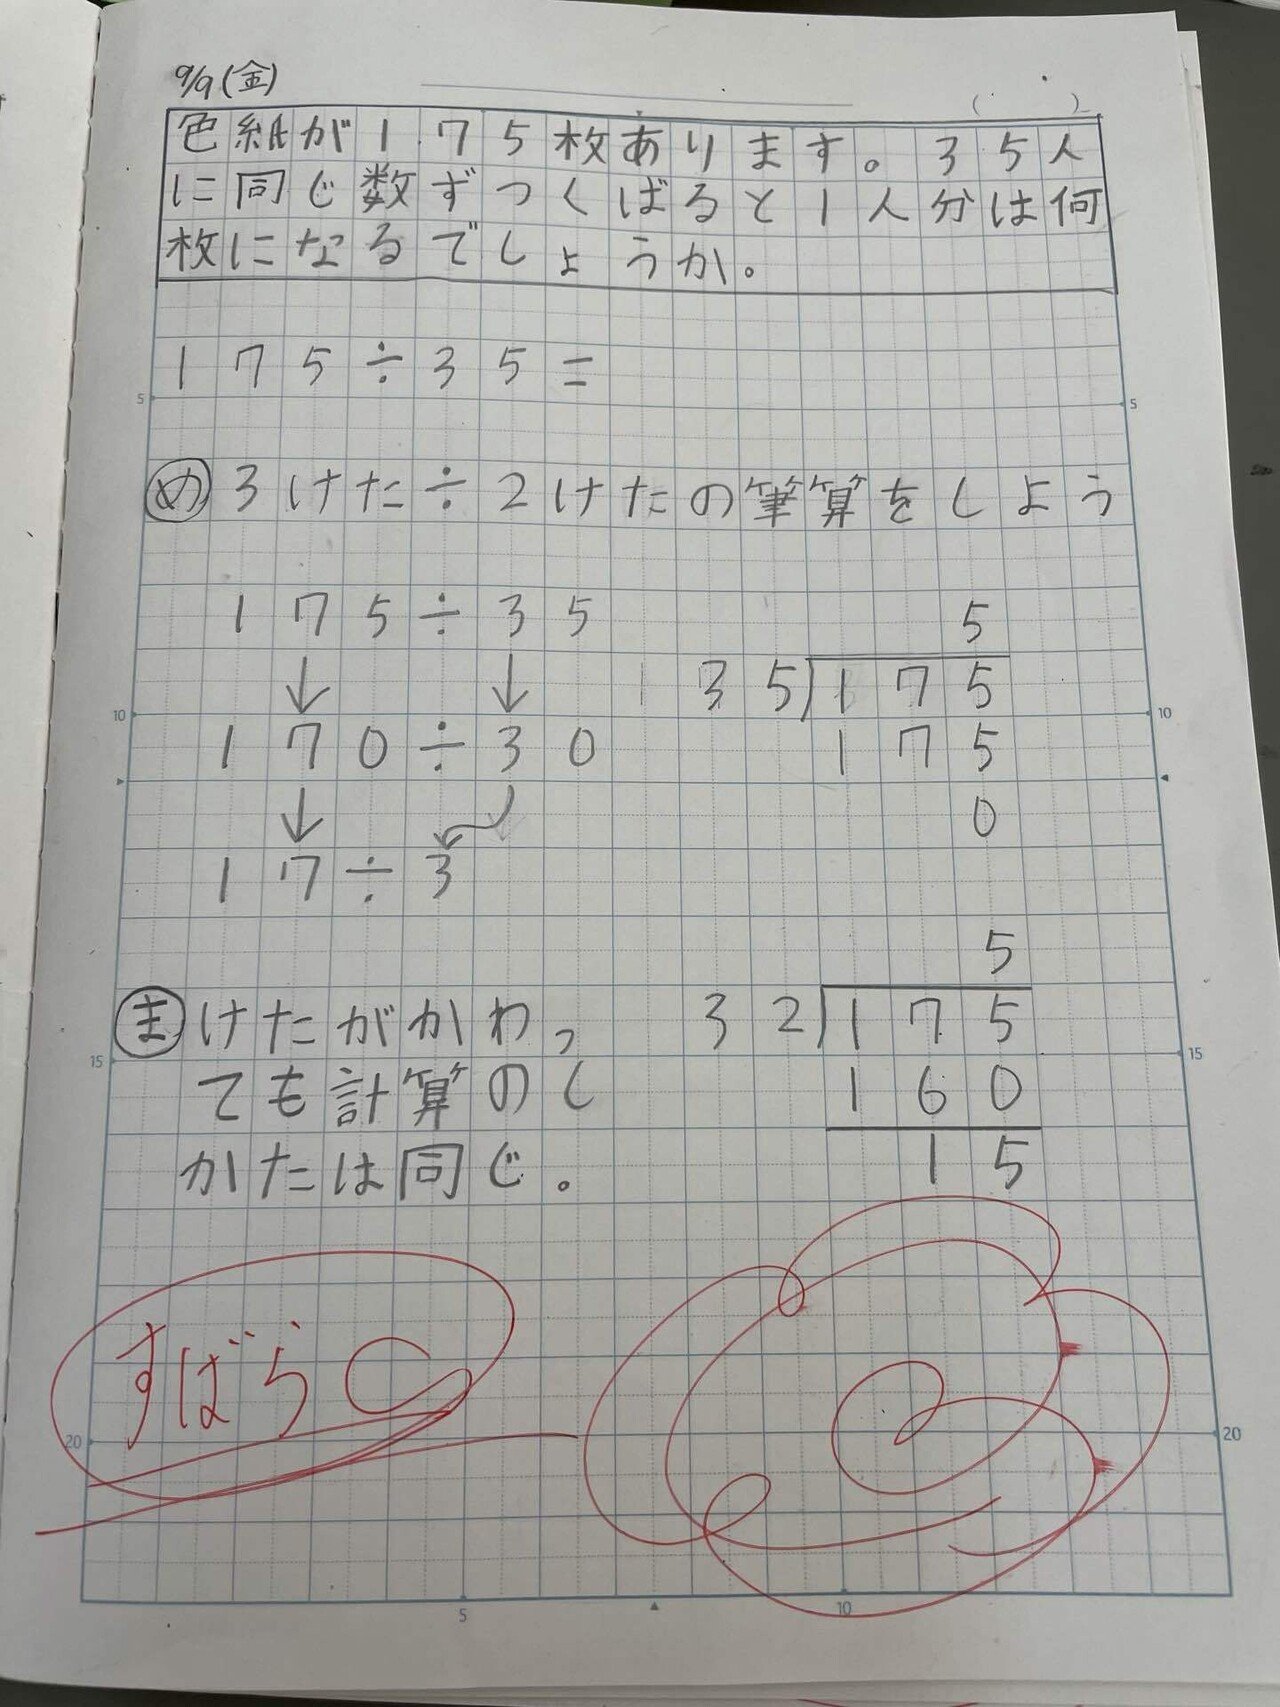 9/9(金)
( )
色紙が175枚あります。35人
に同じ数ずつくばると1人分は何
枚になるでしょうか。
175÷35=
5
5
め 3けた÷2けたの筆算をしよう
175÷35
↓ ↓
10
170÷30
↓
17÷3
5
35)175
10
175
0
ま けたがかわっ
15
ても計算のし
かたは同じ。
5
32)175
15
160
15
すばらし
20
20
5
10